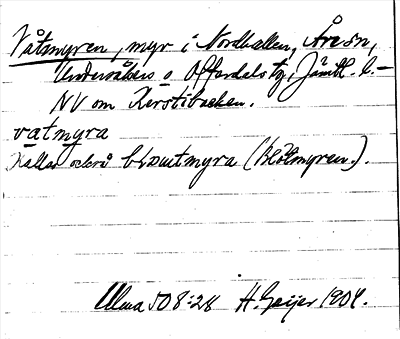 Våtmyren, myr i Nordhallen, Åre sn,
Undersåkers o. Offerdals tg, Jämtl. l. –
NV om Kerstibacken.
vatmyra
Kallas också blautmyra (Blötmyren.).
Ulma 508:28 H. Geijer 1909.